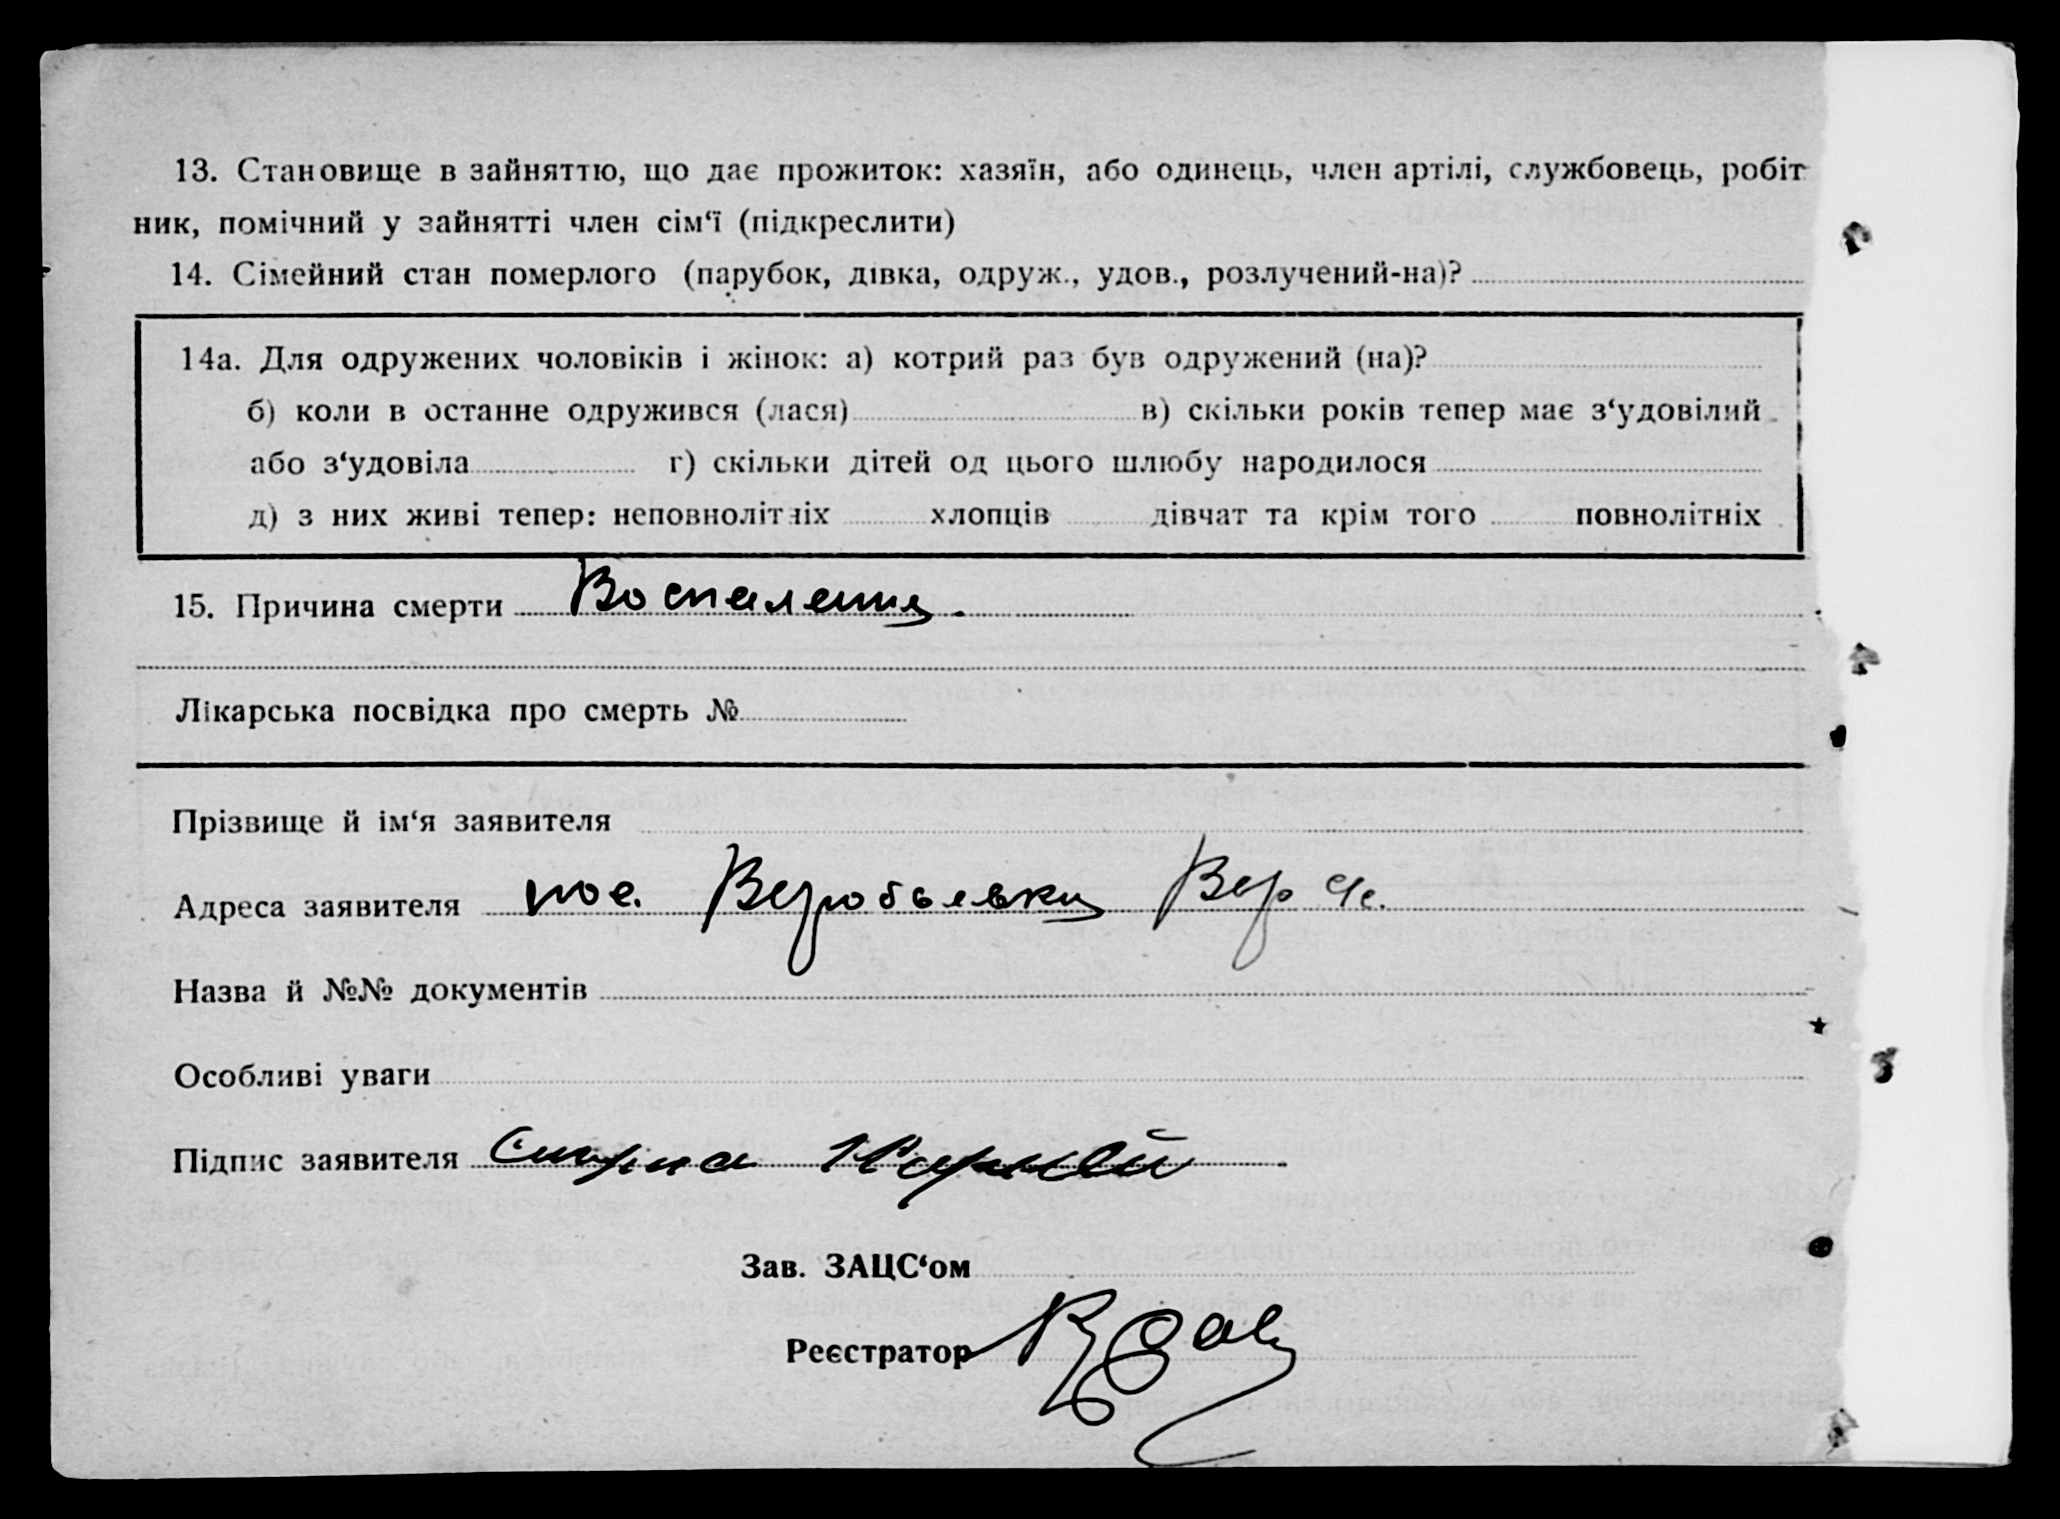 13. Становище в зайняттю, що дає прожиток: хазяїн, або одинець, член артілі, службовець, робіт
ник, помічний у зайнятті член сім‘ї (підкреслити)
14. Сімейний стан померлого (парубок, дівка, одруж., удов., розлучений-на)?
14а. Для одружених чоловіків і жінок: а) котрий раз був одружений (на)?
б) коли в останне одружився (лася) в) скільки років тепер має з‘удовілий
або з‘удовіла г) скільки дітей од цього шлюбу народилося
д) з них живі тепер: неповнолітніх хлопців дівчат та крім того повнолітніх
15. Причина смерти Воспаление.
Лікарська посвідка про смерть №
Прізвище й ім‘я заявителя
Адреса заявителя пос.
Назва й №№ документів
Особливі уваги
Підпис заявителя
Зав. ЗАЦС‘ом
Реєстратор